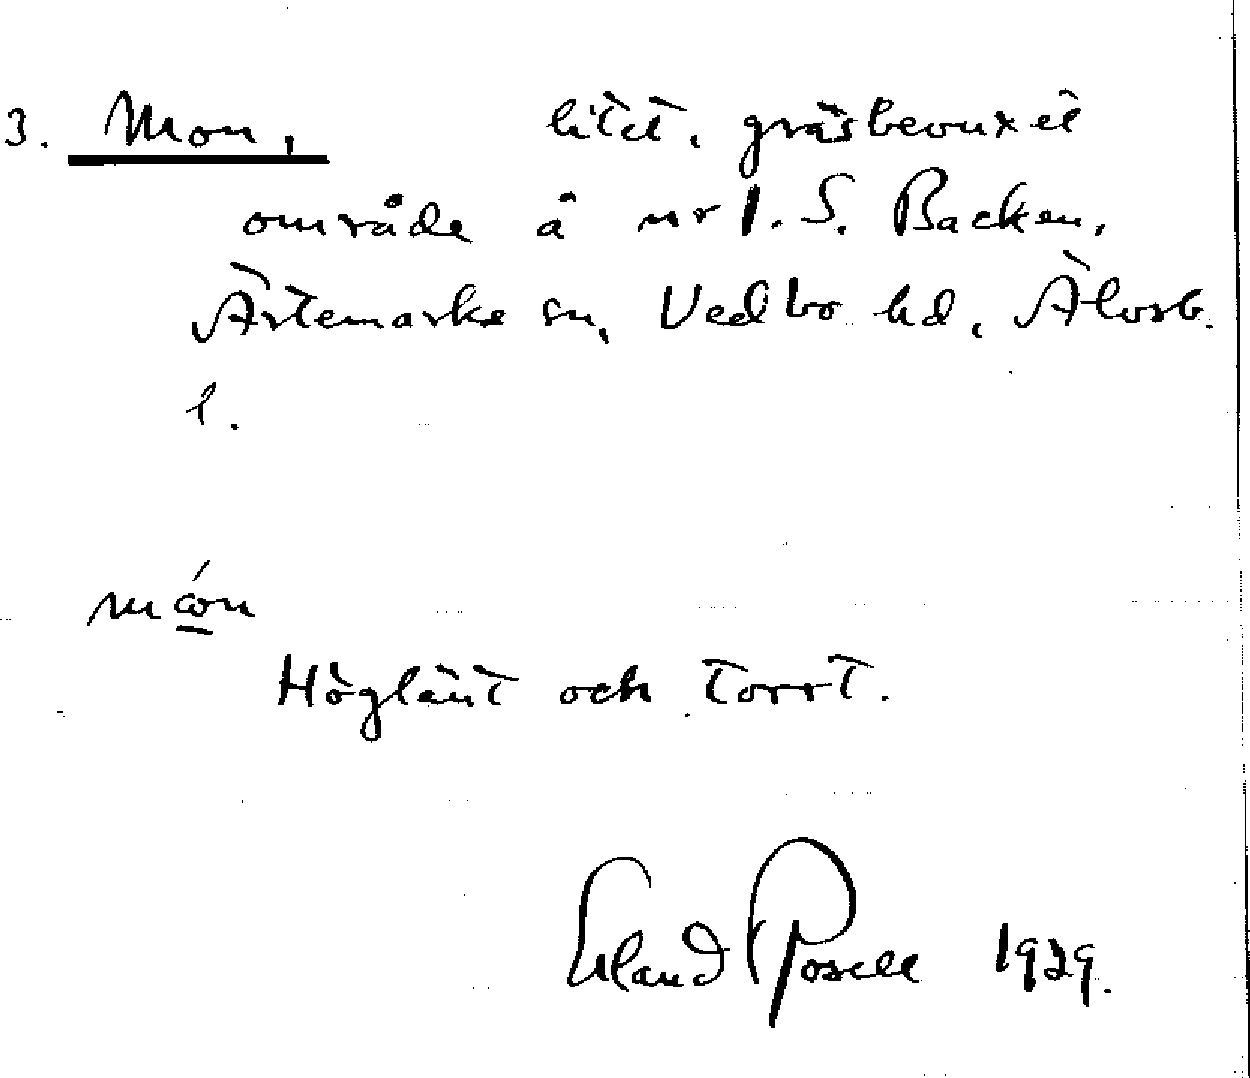 3. Mon, litet, gräsbevuxet
område å nr 1. S. Backen,
Ärtemarke sn, Vedbo hd, Älvsb.
l.
món
Höglänt och torrt.
Erland Rosell 1929.